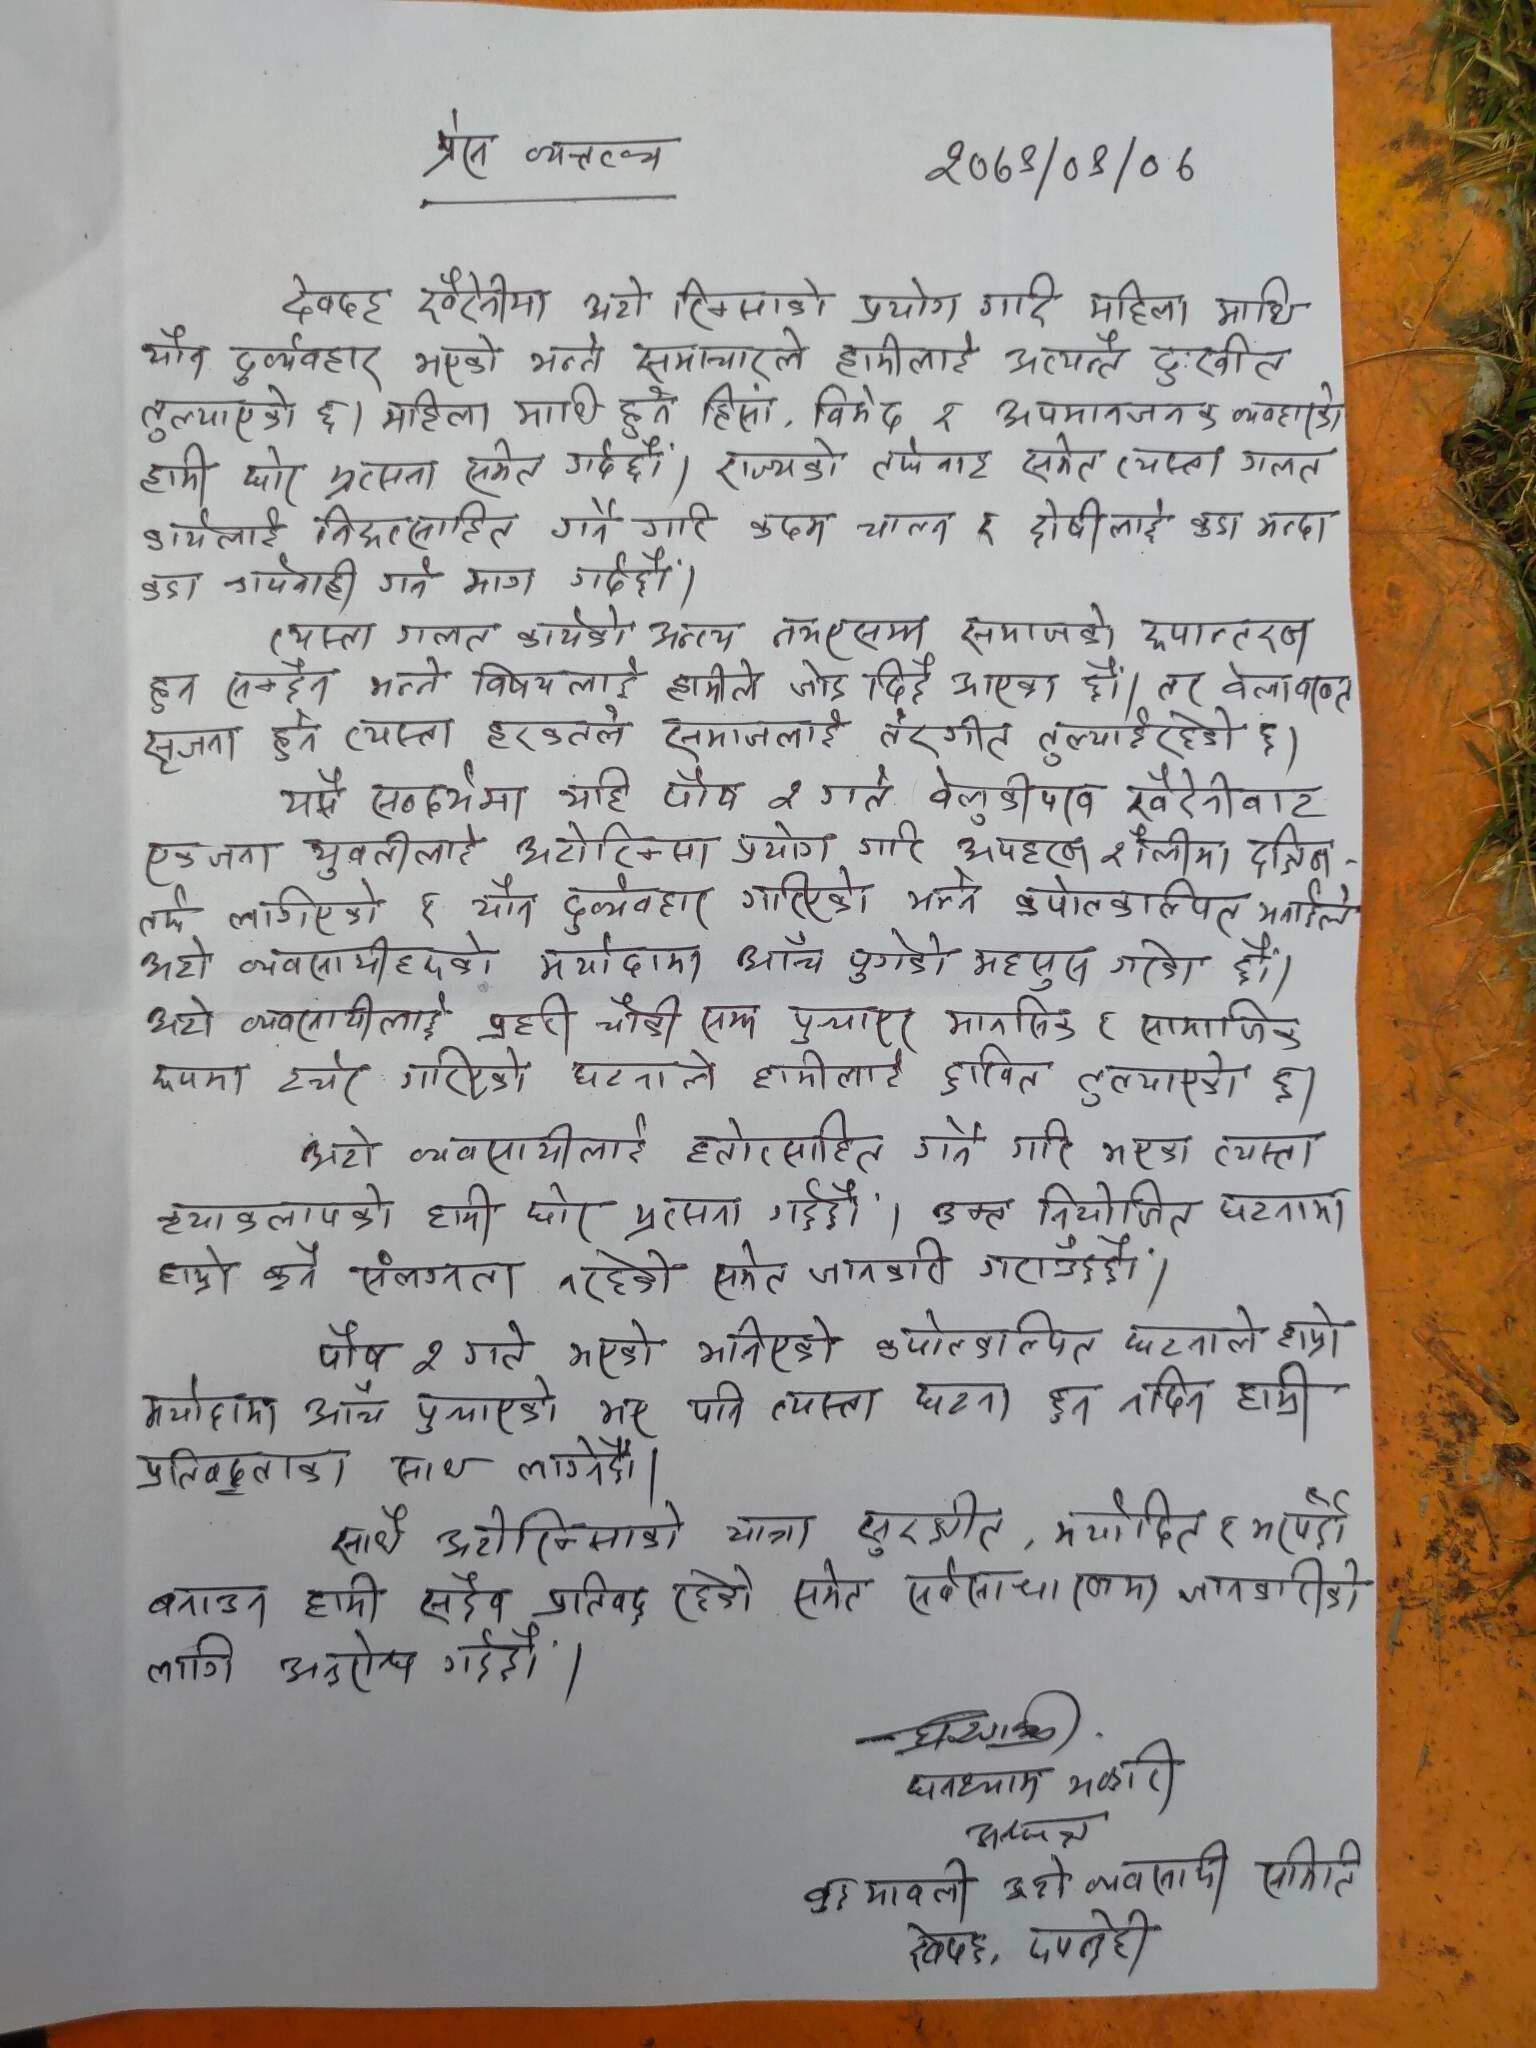 प्रेस व्यक्तव्य
२०७९/०९/०६
देवदह खैरेनीमा अटो रिक्साको प्रयोग गरि महिला माथि
यौन दुर्व्यवहार भएको भन्ने समाचारले हामीलाई अत्यन्तै दुःखीत
तुल्याएको छ। महिला माथि हुने हिंसा, विभेद र अपमानजनक व्यवहारको
हामी घोर भ्रत्सना समेत गर्दछौं। राज्यको तर्फबाट समेत त्यस्ता गलत
कार्यलाई निरुत्साहित गर्ने गरि कदम चाल्न र दोषीलाई कडा भन्दा
कडा कार्यवाही गर्न माग गर्दछौं।
त्यस्ता गलत कार्यको अन्त्य नभएसम्म समाजको रूपान्तरण
हुन सक्दैन भन्ने विषयलाई हामीले जोड दिदै आएका छौं। तर वेलावखत
सृजना हुने त्यस्ता हरकतले समाजलाई तंरगीत तुल्याईरहेको छ।
यसै सन्दर्भमा यहि पौष २ गते वेलुकीपख खैरेनीवाट
एकजना युवतीलाई अटोरिक्सा प्रयोग गरि अपहरण शैलीमा दक्षिण-
तर्फ लगिएको र यौन दुर्व्यवहार गरिएको भन्ने कपोलकाल्पित भनाईले
अटो व्यवसायीहरूको मर्यादामा आँच पुगेको महसुस गरेका छौं।
अटो व्यवसायीलाई प्रहरी चौकी सम्म पुर्‍याएर मानसिक र सामाजिक
रूपमा टर्चर गरिएको घटनाले हामीलाई द्रवित तुल्याएको छ।
अटो व्यवसायीलाई हतोत्साहित गर्ने गरि भएका त्यस्ता
क्रयाकलापको हामी घोर भ्रत्सना गर्दछौं। उक्त नियोजित घटनामा
हाम्रो कुनै संलग्नता नरहेको समेत जानकारी गराउँदछौं।
पौष २ गते भएको भनिएको कपोलकाल्पित घटनाले हाम्रो
मर्यादामा आँच पुर्‍याएको भए पनि त्यस्ता घटना हुन नदिन हामी
प्रतिवद्धताका साथ लाग्नेछौं।
साथै अटोरिक्साको यात्रा सुरक्षीत, मर्यादित र भरपर्दो
बनाउन हामी सदैव प्रतिवद्ध रहेको समेत सर्वसाधारणमा जानकारीको
लागि अनुरोध गर्दछौं।
घनश्याम भण्डारी
अध्यक्ष
बुद्धमावली अटो व्यवसायी समिति
देवदह, रूपन्देही